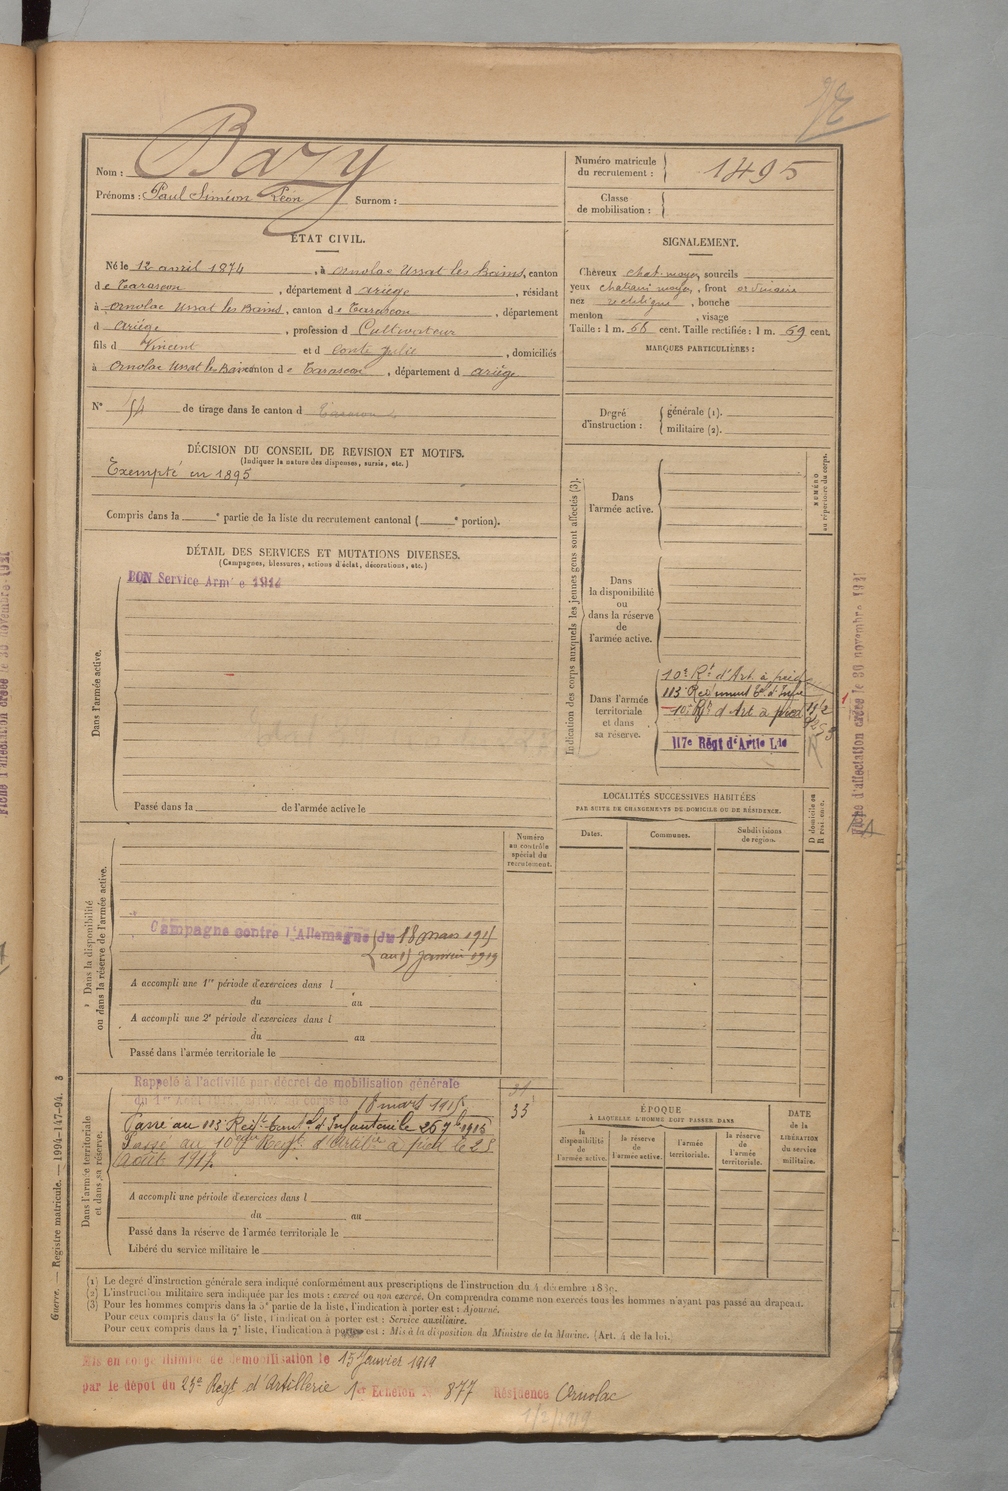 Nom : Bazy
Prénoms : Paul Siméon Léon Surnom :
Numéro matricule du recrutement : 1495
Classe de mobilisation :
ÉTAT CIVIL.
Né le 12 avril 1874, à Ornolac Ussat les Bains, canton
de Tarascon, département d ariège, résidant
à Ornolac Ussat les Bains, canton de Tarascon, département
d ariège, profession d Cultivateur
fils d Vincent et d Conte Julie, domiciliés
à Ornolac Ussat les Bains canton de Tarascon, département d ariège
N° 54 de tirage dans le canton d Tarascon
SIGNALEMENT.
Cheveux chat. moyen, sourcils
yeux chatains moyen, front ordinaire
nez rectiligne, bouche
menton , visage
Taille : 1 m. 58 cent. Taille rectifiée : 1 m. 59 cent.
MARQUES PARTICULIÈRES :
Degré d'instruction : générale (1).
militaire (2).
DÉCISION DU CONSEIL DE REVISION ET MOTIFS.
(Indiquer la nature des dispenses, sursis, etc.)
Exempté en 1895
Compris dans la e partie de la liste du recrutement cantonal ( e portion).
DÉTAIL DES SERVICES ET MUTATIONS DIVERSES.
(Campagnes, blessures, actions d'éclat, décorations, etc.)
BON Service Armée 1914
Dans l'armée active.
Passé dans la de l'armée active le
Indication des corps auxquels les jeunes gens sont affectés (3).
NUMÉRO au répertoire du corps.
Dans l'armée active.
Dans la disponibilité ou dans la réserve de l'armée active.
Dans l'armée territoriale et dans sa réserve.
10e Rt d'Art. à pied
113e Régiment Tal d'Infie
10e Rgt d'Art à pied
117e Régt d'Artie Lde
LOCALITÉS SUCCESSIVES HABITÉES
PAR SUITE DE CHANGEMENTS DE DOMICILE OU DE RÉSIDENCE.
Dates. Communes. Subdivisions de région.
D domicile ou R résidence.
Numéro au contrôle spécial du recrutement.
Dans la disponibilité ou dans la réserve de l'armée active.
Campagne contre l'Allemagne du 18 mars 1915
au 15 Janvier 1919
A accompli une 1re période d'exercices dans l
du au
A accompli une 2e période d'exercices dans l
du au
Passé dans l'armée territoriale le
Dans l'armée territoriale et dans sa réserve.
Rappelé à l'activité par décret de mobilisation générale
du 1er Août 1914, arrivé au corps le 18 mars 1915.
Passé au 113 Regt tal d'Infanterie le 26 7bre 1915
Passé au 10e Regt d'Artie à pied le 25
Août 1917.
31
33
A accompli une période d'exercices dans l
du au
Passé dans la réserve de l'armée territoriale le
Libéré du service militaire le
ÉPOQUE
À LAQUELLE L'HOMME DOIT PASSER DANS
la disponibilité de l'armée active.
la réserve de l'armée active.
l'armée territoriale.
la réserve de l'armée territoriale.
DATE de la LIBÉRATION du service militaire.
(1) Le degré d'instruction générale sera indiqué conformément aux prescriptions de l'instruction du 4 décembre 1889.
(2) L'instruction militaire sera indiquée par les mots : exercé ou non exercé. On comprendra comme non exercés tous les hommes n'ayant pas passé au drapeau.
(3) Pour les hommes compris dans la 5e partie de la liste, l'indication à porter est : Ajourné.
Pour ceux compris dans la 6e liste, l'indication à porter est : Service auxiliaire.
Pour ceux compris dans la 7e liste, l'indication à porter est : Mis à la disposition du Ministre de la Marine. (Art. 4 de la loi.)
Mis en congé illimité de démobilisation le 15 Janvier 1919
par le dépôt du 23e Régt d'Artillerie 1er Echelon N° 877 Résidence Ornolac
1/2/1919
Guerre. — Registre matricule. — 1994-147-94. 3
Fiche d'affectation créée le 30 novembre 1921